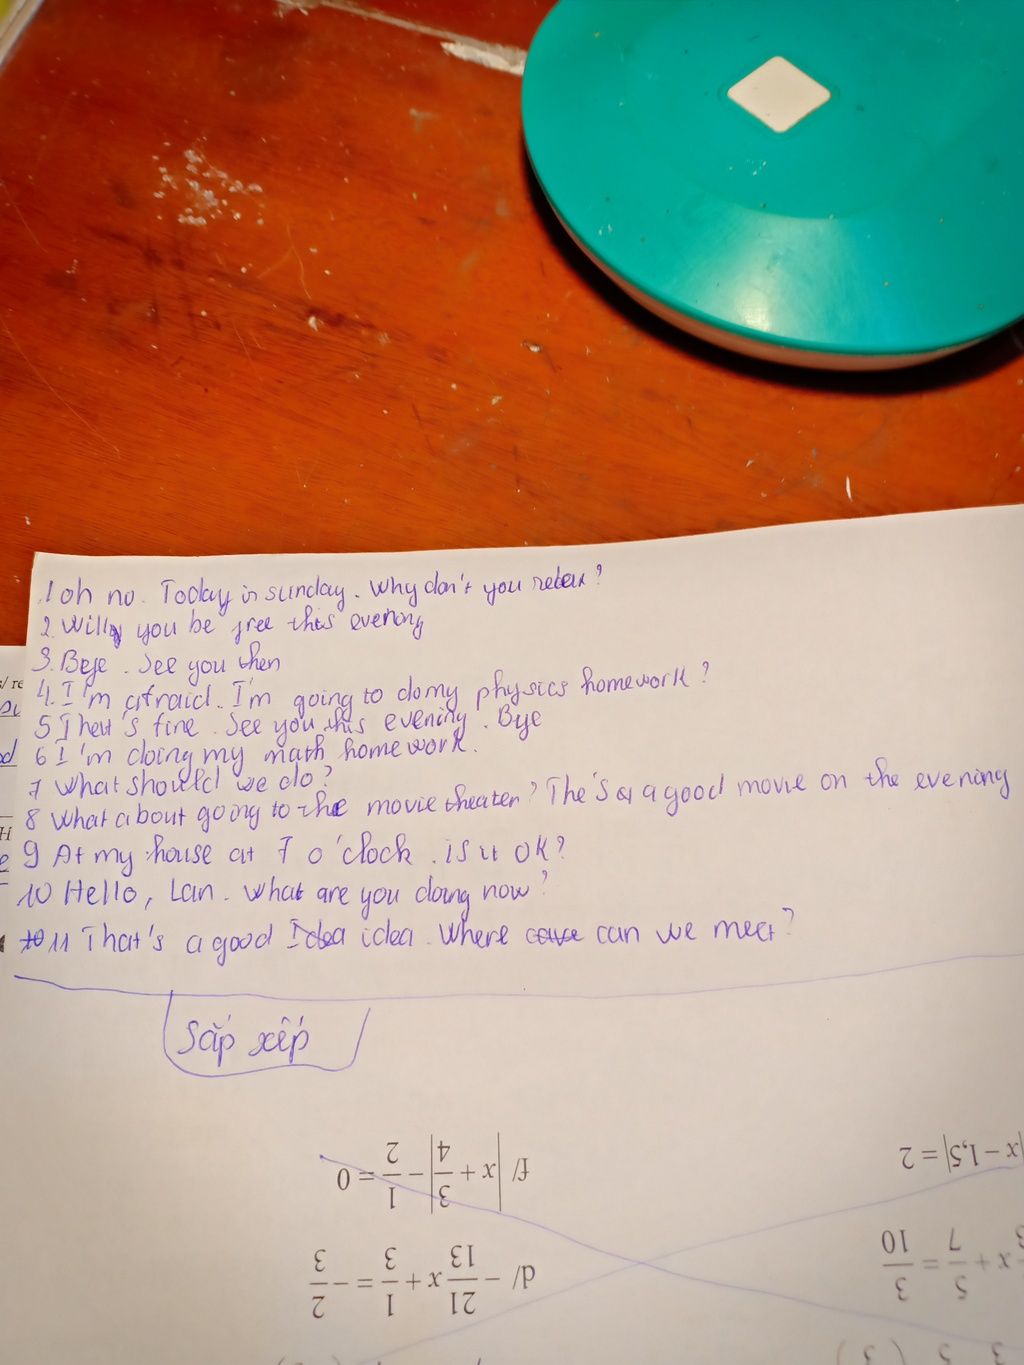 1 oh no. Today is sunday. Why don't you relax?
2. Will you be free this evening
3. Bye. See you then
4. I'm afraid. I'm going to do my physics homework?
5 That's fine. See you this evening. Bye
6 I'm doing my math homework.
7 What should we do?
8 What about going to the movie theater? The's a good movie on the evening
9 At my house at 7 o'clock. is it OK?
10 Hello, Lan. What are you doing now?
11 That's a good idea. Where can we meet?
Sắp xếp
f/ |x + 3/4| - 1/2 = 0
|x - 1,5| = 2
d/ - 21/13 x + 1/3 = - 2/3
x + 5/7 = 3/10